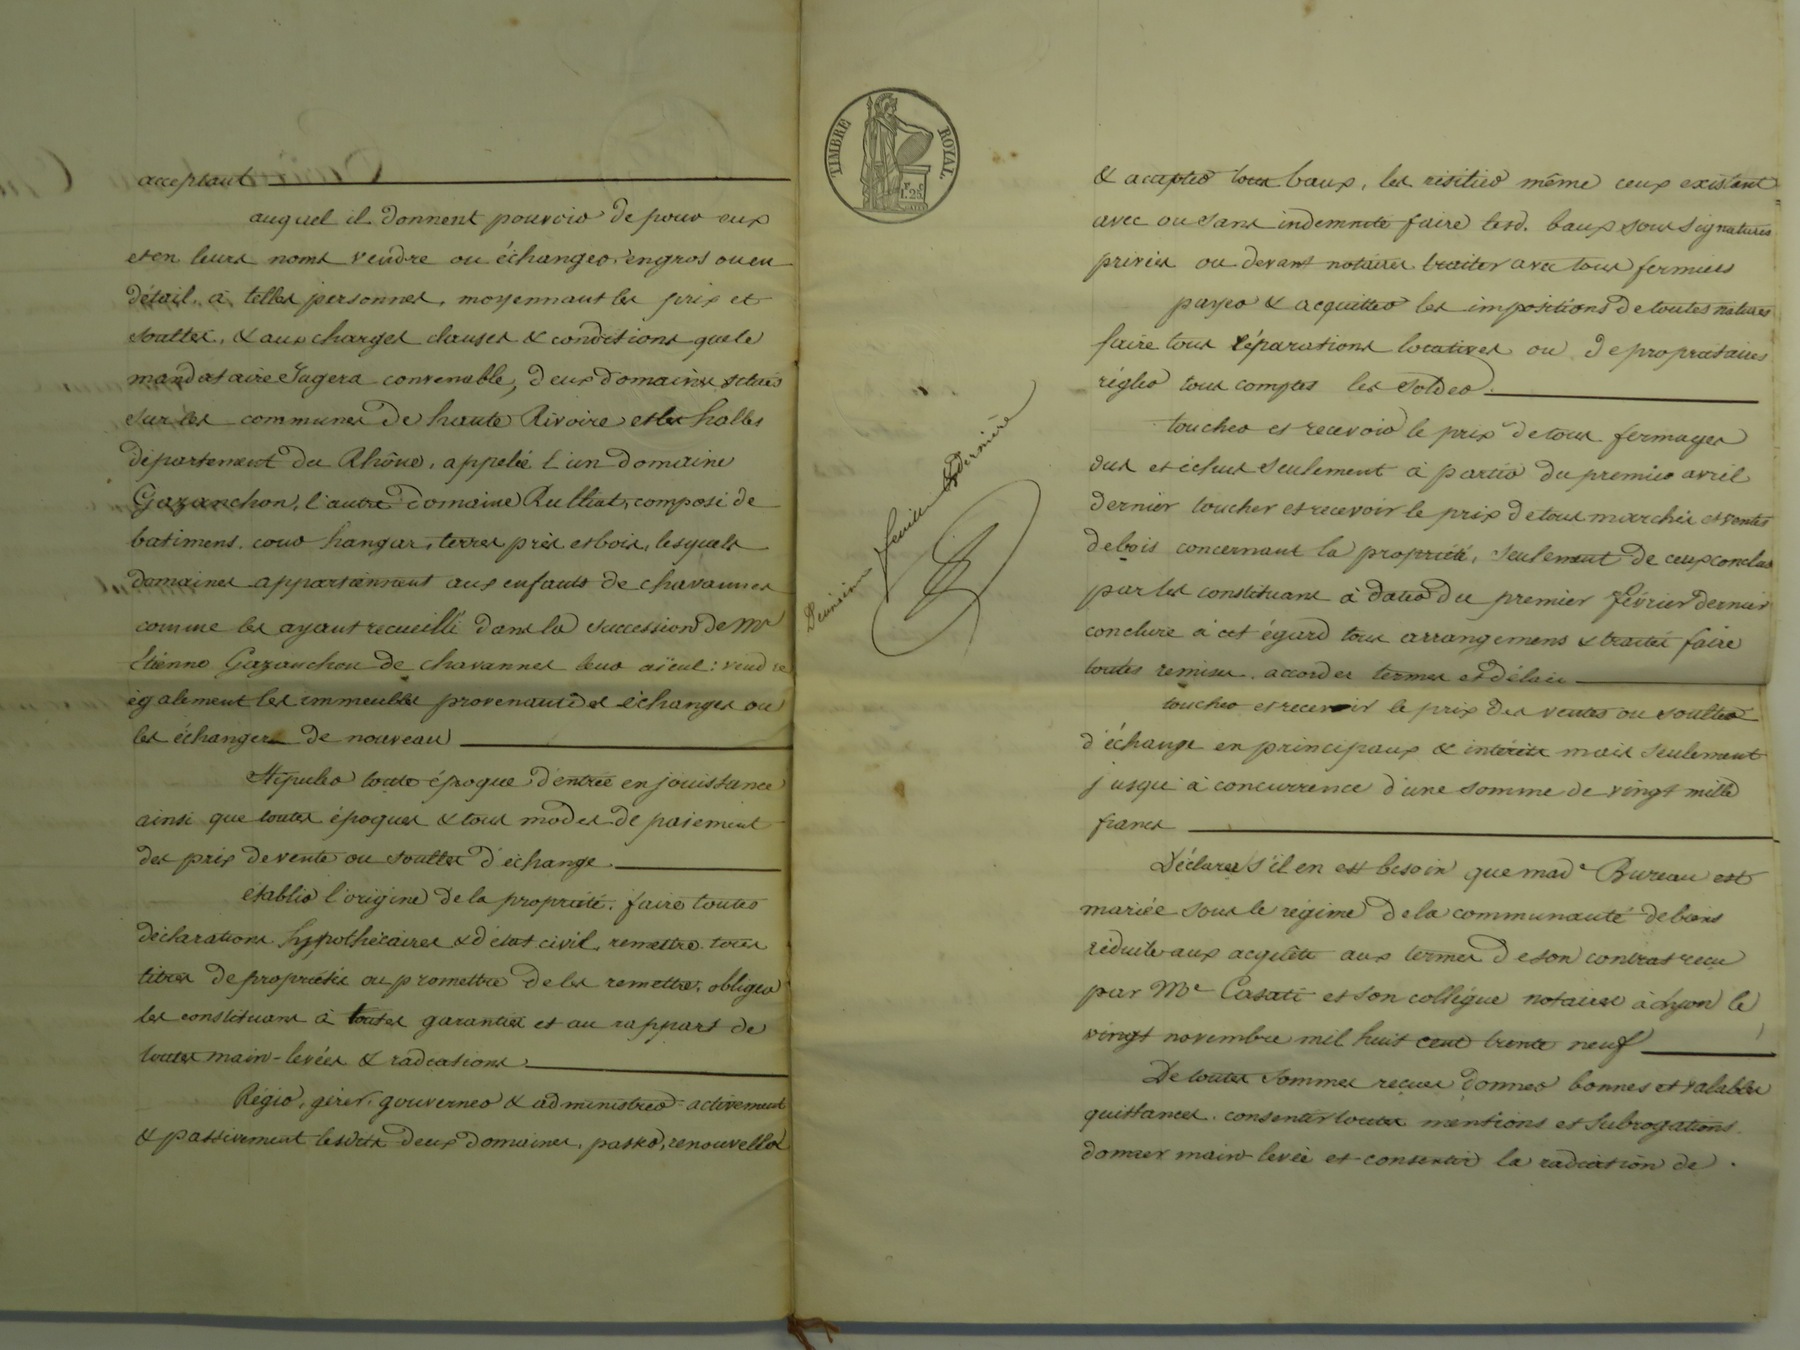 acceptant
auquel il donnent pouvoir de pour eux
et en leurs noms vendre ou échanger, en gros ou en
détail, à telles personnes, moyennant les prix et
soultes, & aux charges clauses & conditions que le
mandataire Jugera convenable, deux domaines situés
sur les communes de haute Rivoire et les halles
département du Rhône, appelés l'un domaine
Gazanchon, l'autre domaine Rulliat, composé de
batimens. cour hangar, terres près et bois, lesquels
domaines appartiennent aux enfants de chavannes
comme les ayant recueilli dans la succession de Mr
Etienne Gazanchon de chavannes leur aïeul : vendre
également les immeubles provenant des échanges ou
les échanger de nouveau
Stipuler toute époque d'entrée en jouissance
ainsi que toutes époques & tous modes de paiement
des prix de vente ou soultes d'échange.
établir l'origine de la propriété. faire toutes
déclarations hypothécaires & d'état civil, remettre tous
titres de propriété ou promettre de les remettre, obliger
les constituans à toutes garanties et au rapport de
toutes main-levées & radiations.
Régir, gérer, gouverner & administrer activement
& passivement lesdits deux domaines, passer, renouveller
TIMBRE ROYAL.
Deuxième feuille & Dernière
& accepter tous baux, les résilier même ceux existant
avec ou sans indemnité faire lesd. baux sous signatures
privées ou devant notaires traiter avec tous fermiers
payer & acquitter les impositions de toutes natures
faire tous réparations locatives ou de propriétaires
régler tous comptes les solder.
toucher et recevoir le prix de tous fermages
dus et échus seulement à partir du premier avril
dernier toucher et recevoir le prix de tous marchés et ventes
de bois concernant la propriété, seulement de ceux conclus
par les constituans à dater du premier février dernier
conclure à cet égard tous arrangemens & traités faire
toutes remises. accorder termes et délais
toucher et recevoir le prix des ventes ou soultes
d'échange en principaux & intérêts mais seulement
jusqu'à concurrence d'une somme de vingt mille
francs
Déclarer s'il en est besoin que made Bureau est
mariée sous le régime de la communauté de biens
réduite aux acquêts aux termes de son contrat reçu
par Me Casati et son collégue notaires à Lyon le
vingt novembre mil huit cent trente neuf
De toutes sommes reçues donner bonnes et valables
quittances. consentir toutes mentions et subrogations.
donner main-levée et consentir la radiation de